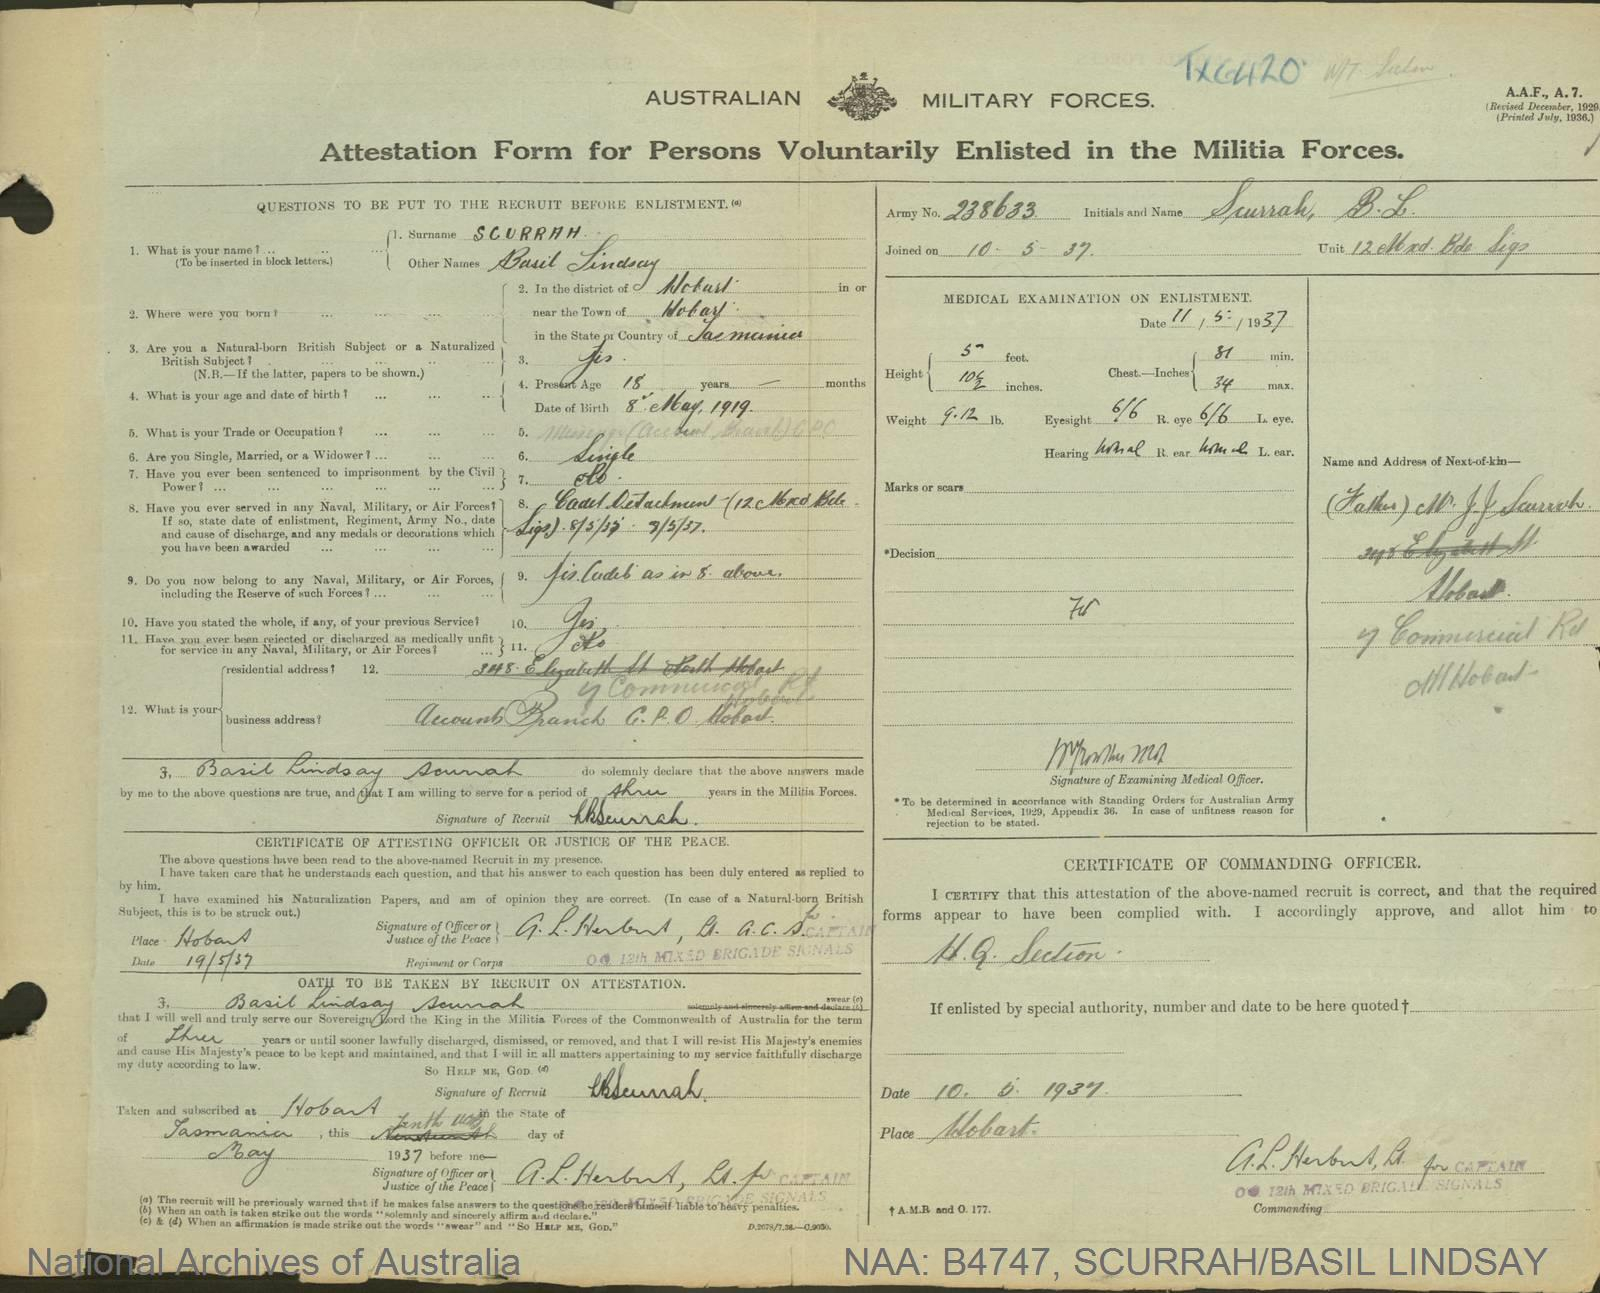 TX6420
AUSTRALIAN MILITARY FORCES.
A.A.F., A. 7.
(Revised December, 1929
(Printed July, 1936.)
Attestation Form for Persons Voluntarily Enlisted in the Militia Forces.
QUESTIONS TO BE PUT TO THE RECRUIT BEFORE ENLISTMENT.(a)
1. What is your name? .. .. ...
(To be inserted in block letters.)
1. Surname SCURRAH.
Other Names Basil Lindsay
2. Where were you born? ... ... ...
2. In the district of Hobart in or
near the Town of Hobart
in the State or Country of Tasmania
3. Are you a Natural-born British Subject or a Naturalized
British Subject? ... ... .. ...
(N.B.—If the latter, papers to be shown.)
3. Yes.
4. What is your age and date of birth? ... ...
4. Present Age 18 years — months
Date of Birth 8th May, 1919.
5. What is your Trade or Occupation? ... ... ...
5. Messenger (Account Branch) G.P.O
6. Are you Single, Married, or a Widower? ... ... ...
6. Single
7. Have you ever been sentenced to imprisonment by the Civil
Power? ... ... ... ... ...
7. No.
8. Have you ever served in any Naval, Military, or Air Forces?
If so, state date of enlistment, Regiment, Army No., date
and cause of discharge, and any medals or decorations which
you have been awarded ... ... ...
8. Cadet Detachment (12 Mxd Bde
Sigs). 8/5/35 9/5/37.
9. Do you now belong to any Naval, Military, or Air Forces,
including the Reserve of such Forces? ... ... ...
9. Yes. Cadet as in 8. above.
10. Have you stated the whole, if any, of your previous Service?
10. Yes.
11. Have you ever been rejected or discharged as medically unfit
for service in any Naval, Military, or Air Forces? ...
11. No
12. What is your
residential address? 12. 348 Elizabeth St North Hobart
7 Commercial Rd
Hobart
business address? Accounts Branch G.P.O Hobart.
I, Basil Lindsay Scurrah do solemnly declare that the above answers made
by me to the above questions are true, and that I am willing to serve for a period of three years in the Militia Forces.
Signature of Recruit BLScurrah.
CERTIFICATE OF ATTESTING OFFICER OR JUSTICE OF THE PEACE.
The above questions have been read to the above-named Recruit in my presence.
I have taken care that he understands each question, and that his answer to each question has been duly entered as replied to
by him.
I have examined his Naturalization Papers, and am of opinion they are correct. (In case of a Natural-born British
Subject, this is to be struck out.)
Signature of Officer or
Justice of the Peace
A. L. Herbert, Lt. A.C.S. for CAPTAIN
Place Hobart
Date 19/5/37
Regiment or Corps OC 12th MIXED BRIGADE SIGNALS
OATH TO BE TAKEN BY RECRUIT ON ATTESTATION.
I, Basil Lindsay Scurrah swear (c)
solemnly and sincerely affirm and declare (b)
that I will well and truly serve our Sovereign Lord the King in the Militia Forces of the Commonwealth of Australia for the term
of Three years or until sooner lawfully discharged, dismissed, or removed, and that I will resist His Majesty's enemies
and cause His Majesty's peace to be kept and maintained, and that I will in all matters appertaining to my service faithfully discharge
my duty according to law.
SO HELP ME, GOD. (d)
Signature of Recruit BLScurrah.
Taken and subscribed at Hobart in the State of
Tasmania, this Nineteenth Tenth day of
May 1937 before me—
Signature of Officer or
Justice of the Peace
A. L. Herbert, Lt. for CAPTAIN
OC 12th MIXED BRIGADE SIGNALS
(a) The recruit will be previously warned that if he makes false answers to the questions he renders himself liable to heavy penalties.
(b) When an oath is taken strike out the words "solemnly and sincerely affirm and declare."
(c) & (d) When an affirmation is made strike out the words "swear" and "SO HELP ME, GOD."
D.2678/7.36.—C.9030.
Army No. 238633. Initials and Name Scurrah, B.L.
Joined on 10 - 5 - 37. Unit 12 Mxd. Bde Sigs
MEDICAL EXAMINATION ON ENLISTMENT.
Date 11 / 5 / 1937
Height 5 feet. 10½ inches.
Chest.—Inches 31 min. 34 max.
Weight 9.12 lb. Eyesight 6/6 R. eye 6/6 L. eye.
Hearing Normal R. ear Normal L. ear.
Marks or scars
*Decision
Fit
Signature of Examining Medical Officer.
* To be determined in accordance with Standing Orders for Australian Army
Medical Services, 1929, Appendix 36. In case of unfitness reason for
rejection to be stated.
Name and Address of Next-of-kin—
(Father) Mr. J. J Scurrah.
348 Elizabeth St.
Hobart.
7 Commercial Rd
Nth Hobart
CERTIFICATE OF COMMANDING OFFICER.
I CERTIFY that this attestation of the above-named recruit is correct, and that the required
forms appear to have been complied with. I accordingly approve, and allot him to
H.Q. Section.
If enlisted by special authority, number and date to be here quoted†
Date 10. 5. 1937.
Place Hobart.
A. L. Herbert, Lt. for CAPTAIN
OC 12th MIXED BRIGADE SIGNALS
Commanding
† A.M.R. and O. 177.
National Archives of Australia
NAA: B4747, SCURRAH/BASIL LINDSAY